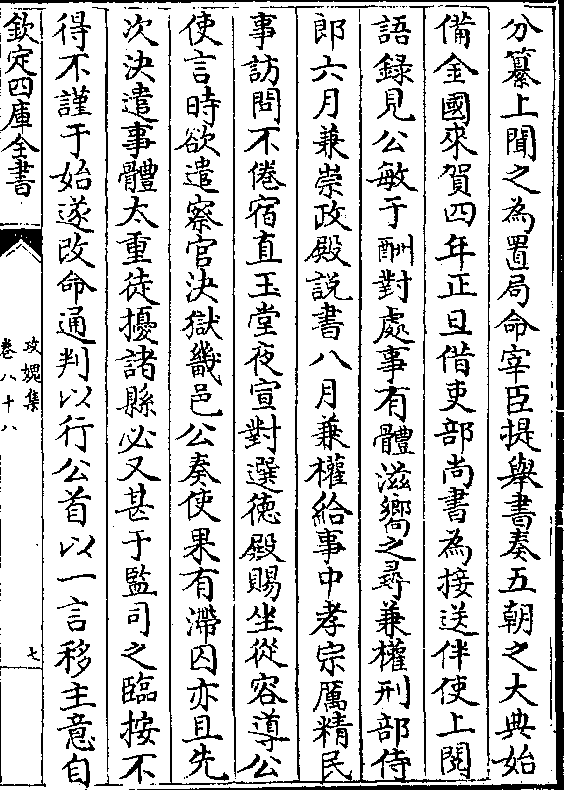 分纂上聞之為置局命宰臣提舉書奏五朝之大典始
備金國來賀四年正旦借吏部尚書為接送伴使上閱
語錄見公敏于酬對處事有體滋嚮之尋兼權刑部侍
郎六月兼崇政殿説書八月兼權給事中孝宗厲精民
事訪問不倦宿直玉堂夜宣對選徳殿賜坐從容導公
使言時欲遣察官決獄畿邑公奏使果有滯囚亦且先
次決遣事體太重徒擾諸縣必又甚于監司之臨按不
得不謹于始遂改命通判以行公首以一言移主意自
欽定四庫全書
攻媿集
卷八十八
七